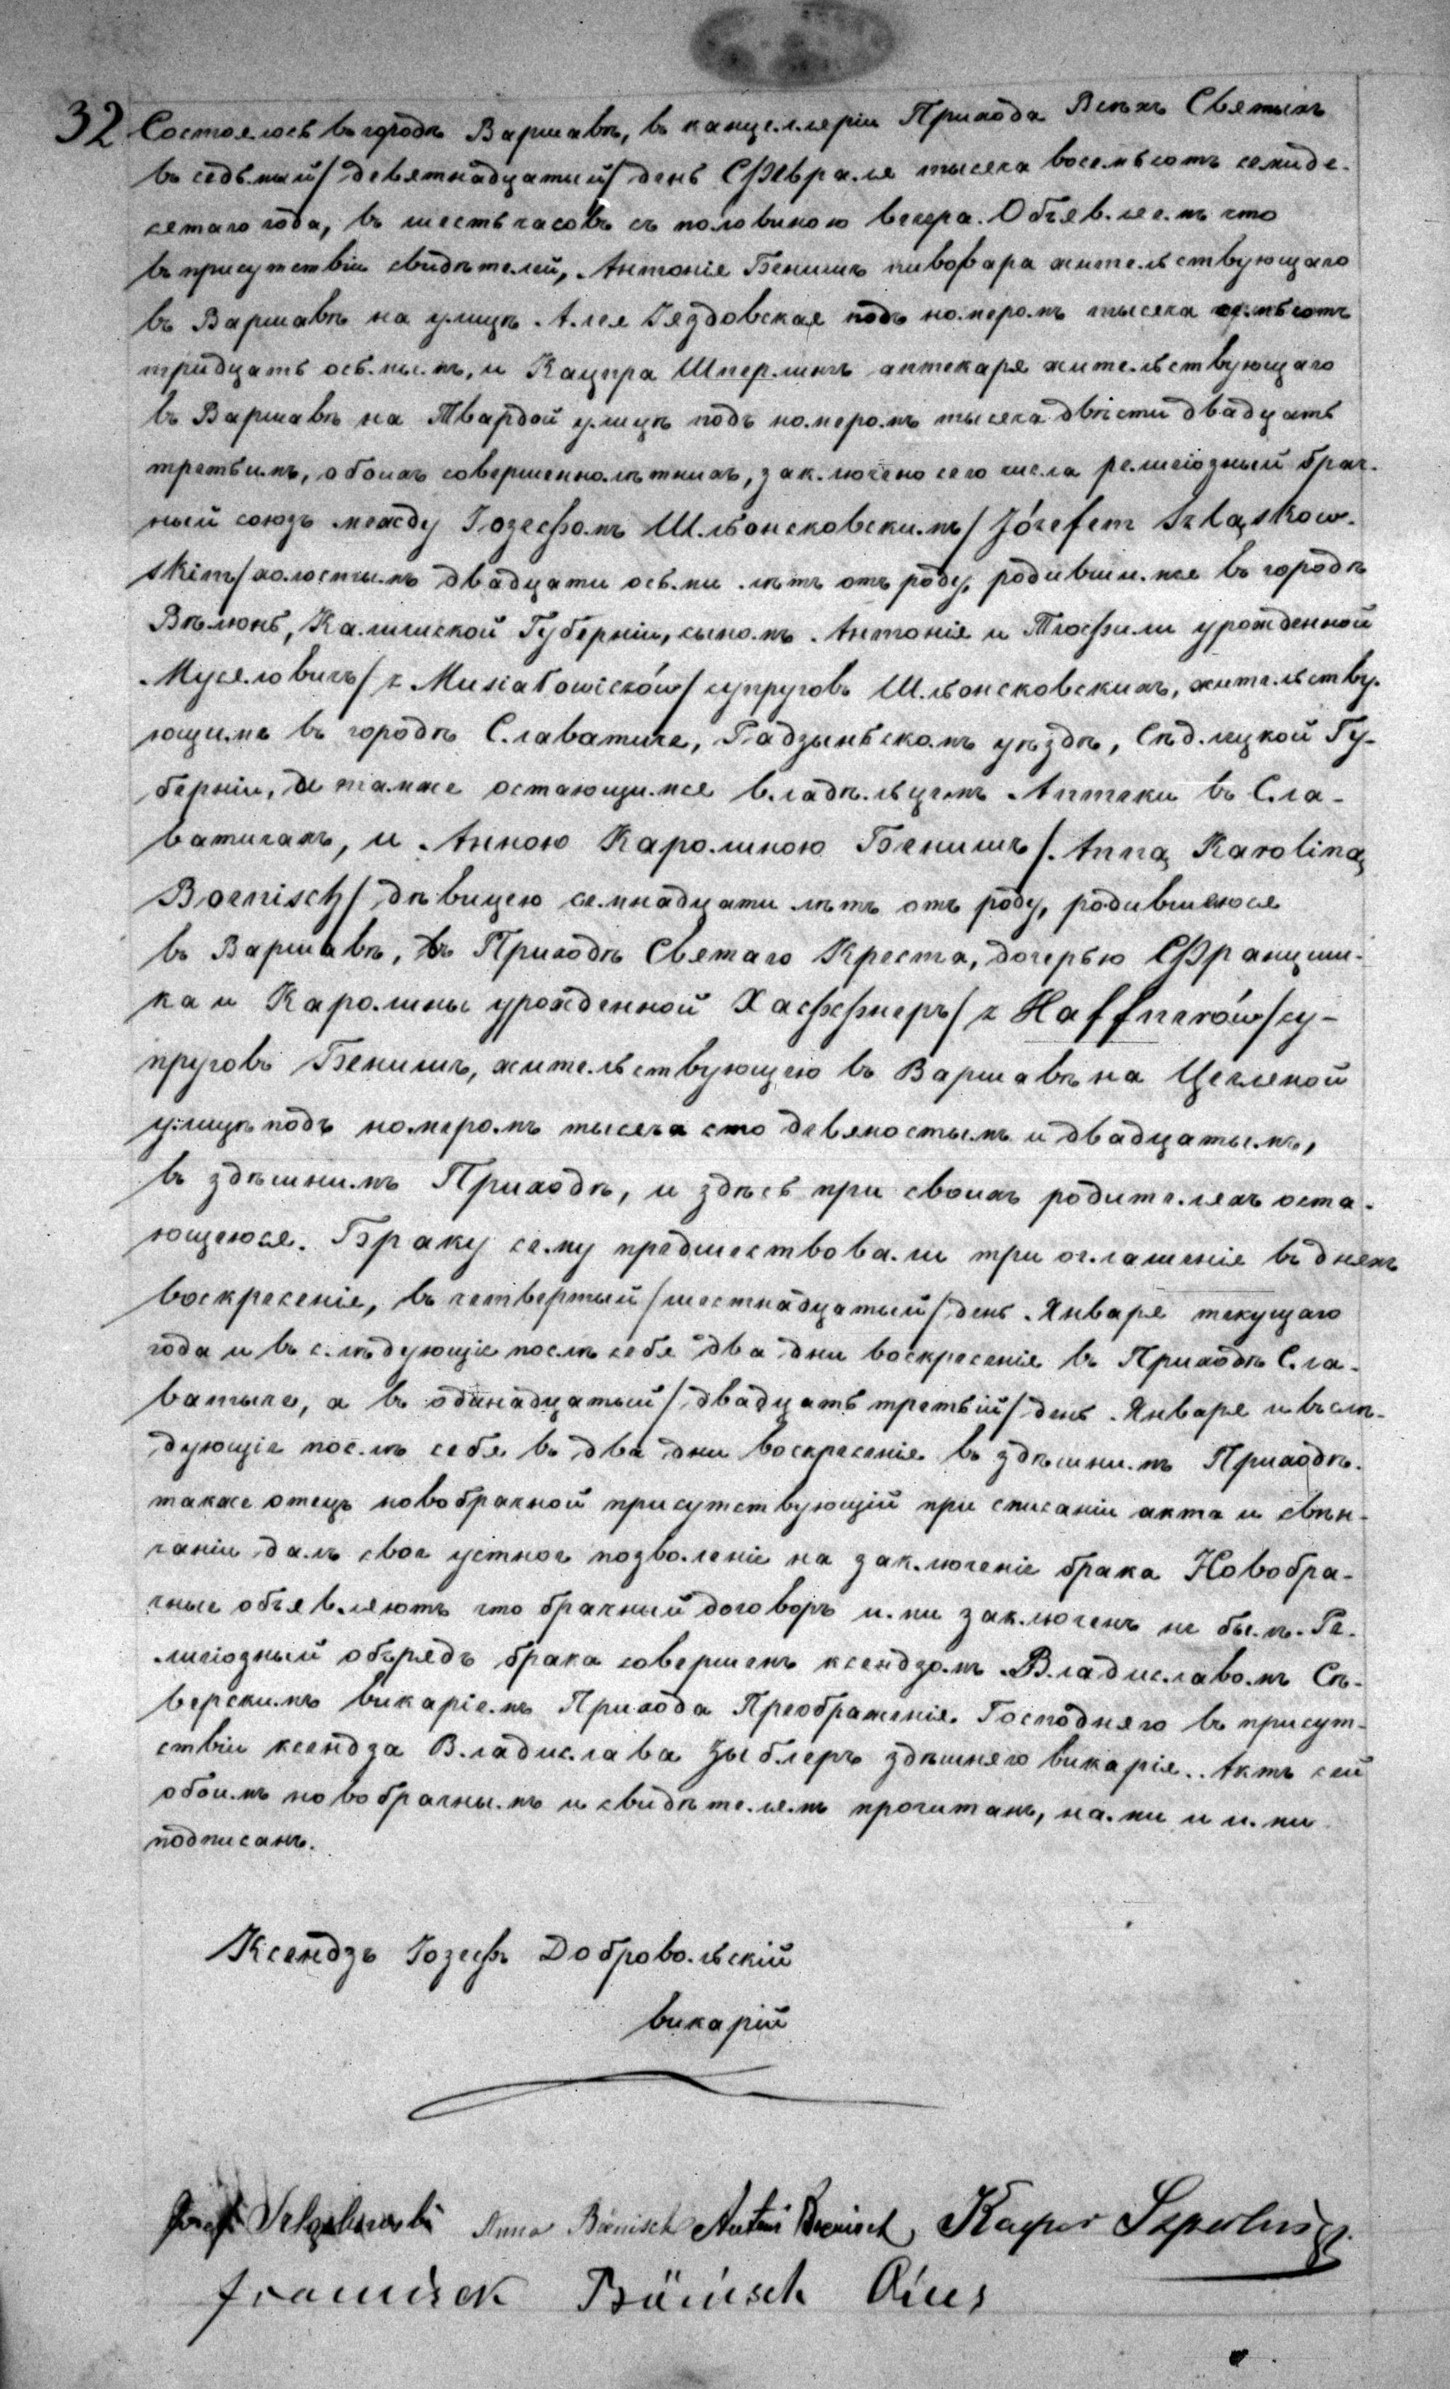 32 Состоялось въ городѣ Варшавѣ, въ канцелляріи Прихода Всѣхъ Святыхъ
въ седьмый/девятнадцатый/день Февраля тысяча восемьсотъ семиде-
сятаго года, въ шесть часовъ съ половиною вечера. Объявляемъ что
въ присутствіи свидѣтелей, Антонія Бенишъ пивовара жительствующаго
въ Варшавѣ на улицѣ Алея Уяздовская подъ номеромъ тысяча семьсотъ
тридцать осьмымъ, и Кацпра Шперлингъ аптекаря жительствующаго
въ Варшавѣ на Твардой улицѣ подъ номеромъ тысяча двѣсти двадцать
третьимъ, обоихъ совершеннолѣтнихъ, заключено сего числа религіозный брач-
ный союзъ между Іозефомъ Шлёнсковскимъ/Józefem Szląskow-
skim/холостымъ двадцати осьми лѣтъ отъ роду, родившимся въ городѣ
Вѣлюнѣ, Калишской Губерніи, сыномъ Антонія и Теофили урожденной
Мусяловичъ/z Musiałowiczów/супруговъ Шлёнсковскихъ, жительству-
ющимъ въ городѣ Славатыче, Радзыньскомъ уѣздѣ, Сѣдлецкой Гу-
берніи, и тамже остающимся владѣльцемъ Аптеки въ Сла-
ватичахъ, и Анною Каролиною Бенишъ/Anną Karoliną
Boenisch/дѣвицею семнадцати лѣтъ отъ роду, родившеюся
въ Варшавѣ, въ Приходѣ Святаго Креста, дочерью Францишка
ка и Каролины урожденной Хаффнеръ/z Haffnerów/су-
пруговъ Бенишъ, жительствующею въ Варшавѣ на Цегляной
улицѣ подъ номеромъ тысяча сто девяностымъ и двадцатымъ,
въ здѣшнимъ Приходѣ, и здѣсь при своихъ родителяхъ оста-
ющеюся. Браку сему предшествовали три оглашенія въ дняхъ
воскресенія, въ четвертый/шестнадцатый/день Января текущаго
года и въ слѣдующіе послѣ себя два дни воскресенія въ Приходѣ Сла-
ватыче, а въ одинадцатый/двадцать третьій/день Января и въ слѣ-
дующіе послѣ себя въ два дни воскресенія въ здѣшнимъ Приходѣ.
также отецъ новобрачной присутствующій при списаніи акта и свѣн-
чаніи далъ свое устное позволеніе на заключеніе брака Новобра-
чные объявляютъ что брачный договоръ ими заключенъ не былъ. Ре-
лигіозный обрядъ брака совершенъ ксендзомъ Владиславомъ Сѣ-
верскимъ викаріемъ Прихода Преображенія Господняго въ присут-
ствіи ксендза Владислава Зыблеръ здѣшняго викарія. Актъ сей
обоимъ новобрачнымъ и свидѣтелямъ прочитанъ, нами и ими
подписанъ.
Ксендзъ Іозефъ Добровольскій
викарій
Józef Anna Bönisch Antoni Boenisch Kacper Szperling
Franciszek Bönisch Oiciec